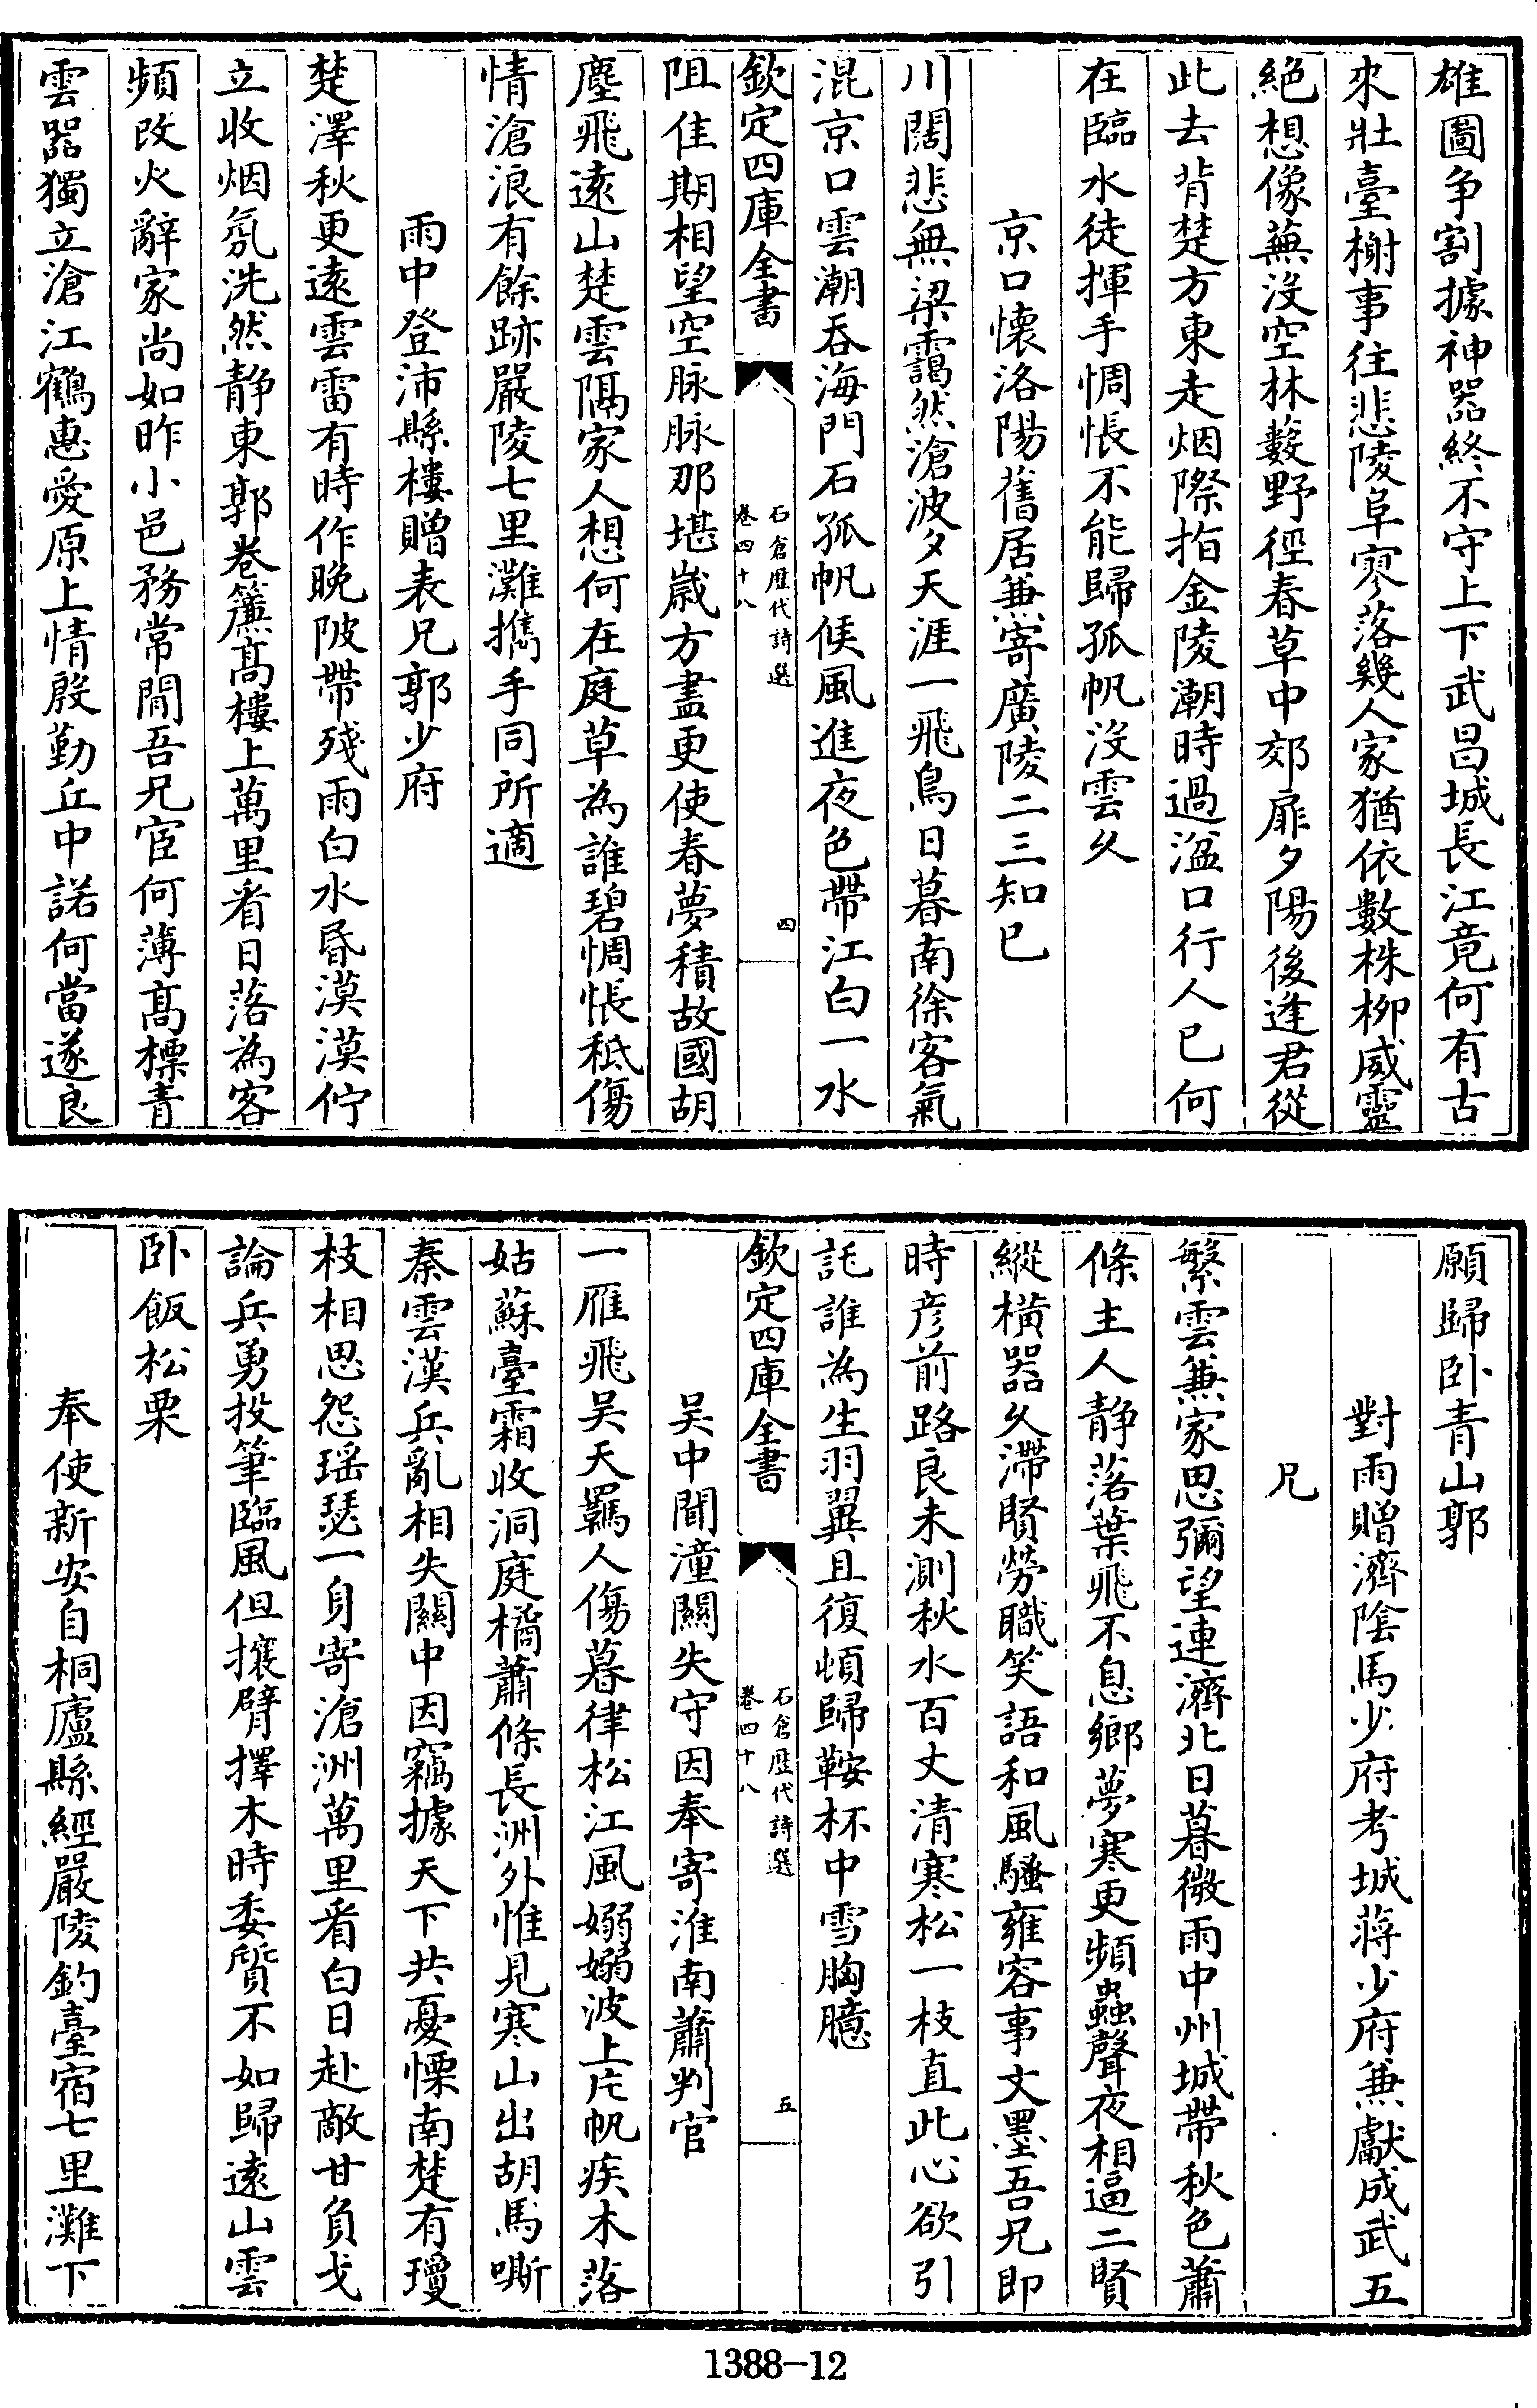 雄圖争割據神器終不守上下武昌城長江竟何有古
來壯臺榭事往悲陵阜寥落幾人家猶依數株柳威靈
絶想像蕪没空林藪野徑春草中郊扉夕陽後逢君從
此去背楚方東走烟際指金陵潮時過湓口行人已何
在臨水徒揮手惆悵不能歸孤帆没雲久
京口懷洛陽舊居兼寄廣陵二三知已
川闊悲無梁靄然滄波夕天涯一飛鳥日暮南徐客氣
混京口雲潮吞海門石孤帆候風進夜色帶江白一水
欽定四庫全書
石倉歷代詩選
卷四十八
四
阻佳期相望空脉脉那堪嵗方盡更使春夢積故國胡
塵飛遠山楚雲隔家人想何在庭草為誰碧惆悵秪傷
情滄浪有餘跡嚴陵七里灘擕手同所適
雨中登沛縣樓贈表兄郭少府
楚澤秋更遠雲雷有時作晚陂帶殘雨白水昏漠漠佇
立收烟氛洗然静東郭卷簾髙樓上萬里看日落為客
頻改火辭家尚如昨小邑務常閒吾兄宦何薄髙標青
雲器獨立滄江鶴惠愛原上情殷勤丘中諾何當遂良
願歸卧青山郭
對雨贈濟隂馬少府考城蔣少府兼獻成武五
兄
繁雲兼家思彌望連濟北日暮微雨中州城帶秋色蕭
條主人静落葉飛不息鄉夢寒更頻蟲聲夜相逼二賢
縱横器久滯賢勞職笑語和風騷雍容事文墨吾兄即
時彦前路良未測秋水百丈清寒松一枝直此心欲引
託誰為生羽翼且復頓歸鞍杯中雪胸臆
欽定四庫全書
石倉歷代詩選
卷四十八
五
吳中聞潼關失守因奉寄淮南蕭判官
一雁飛吳天羈人傷暮律松江風嫋嫋波上片帆疾木落
姑蘇臺霜收洞庭橘蕭條長洲外惟見寒山出胡馬嘶
秦雲漢兵亂相失關中因竊據天下共憂慄南楚有瓊
枝相思怨瑶瑟一身寄滄洲萬里看白日赴敵甘負戈
論兵勇投筆臨風但攘臂擇木時委質不如歸遠山雲
卧飯松栗
奉使新安自桐廬縣經嚴陵釣臺宿七里灘下
1388-12